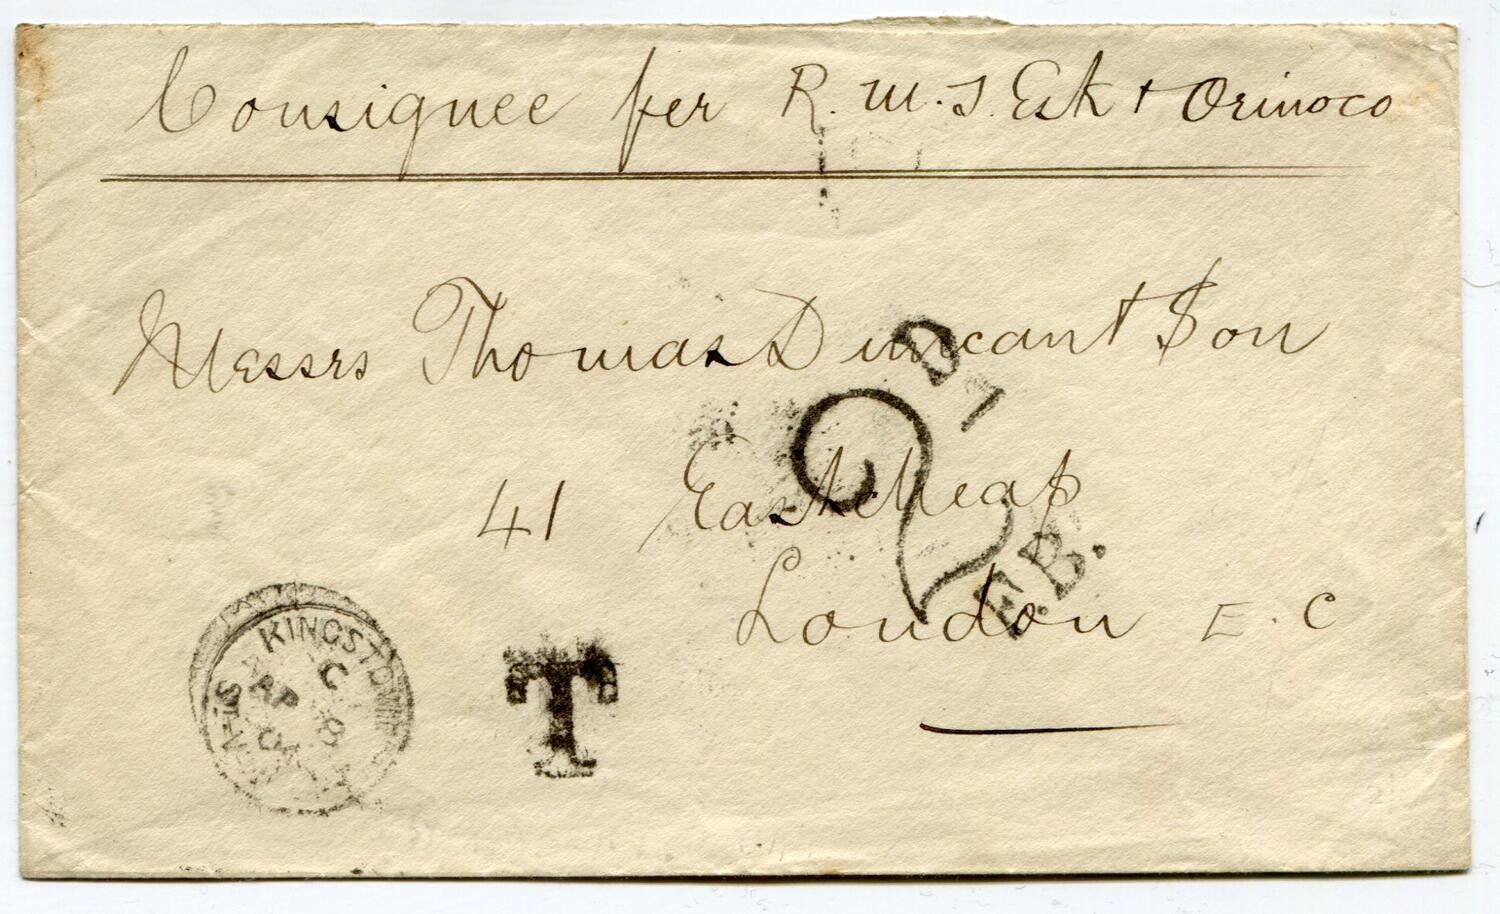 Consignee per R.M.S. Esk + Orinoco
Messrs Thomas Duncan + Son
41 Eastcheap
London E.C
2D
F.B.
T
KINGSTOWN
C
AP 9
ST